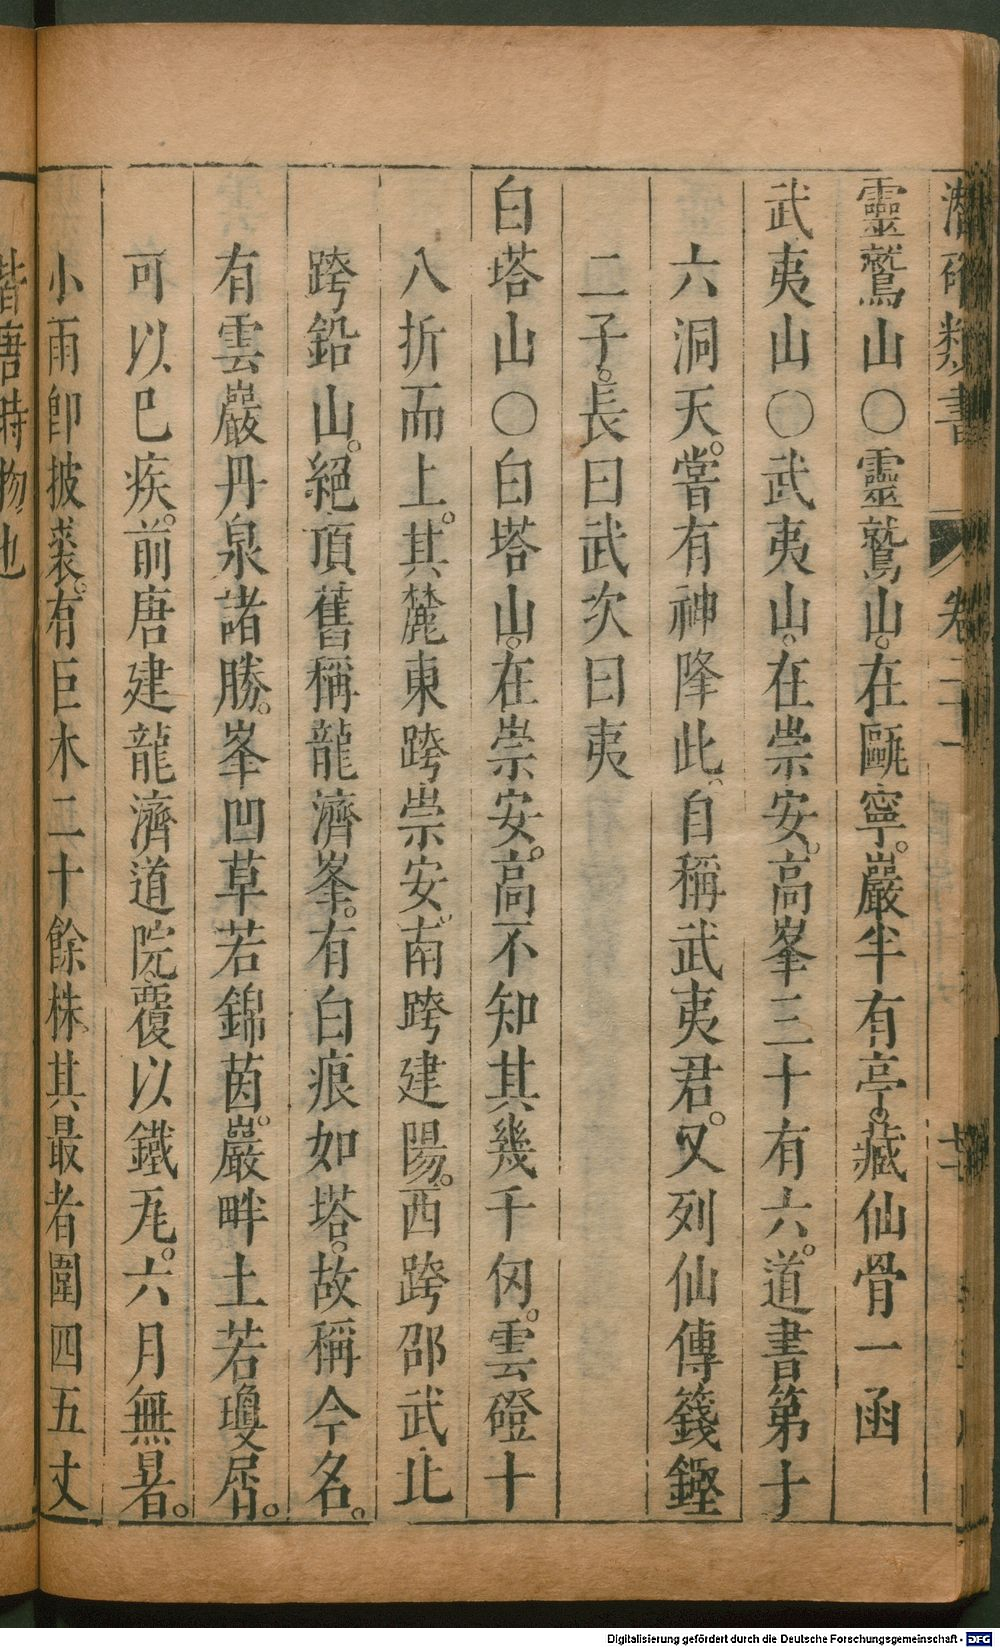 潛確類書 卷二十一
靈鷲山〇靈鷲山。在甌寧。巖半有亭。藏仙骨一函
武夷山〇武夷山。在崇安。高峯三十有六。道書第十
六洞天。嘗有神降此。自稱武夷君。又列仙傳籛鏗
二子。長曰武次曰夷
白塔山〇白塔山。在崇安。高不知其幾千仞。雲磴十
八折而上。其麓東跨崇安。南跨建陽。西跨邵武北
跨鉛山。絕頂舊稱龍濟峯。有白痕如塔。故稱今名。
有雲巖丹泉諸勝。峯凹草若錦茵。巖畔土若瓊屑。
可以已疾。前唐建龍濟道院。覆以鐵瓦。六月無暑。
小雨卽披裘。有巨木二十餘株。其最者圍四五丈
皆唐時物也
Digitalisierung gefördert durch die Deutsche Forschungsgemeinschaft - DFG